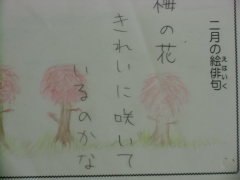 二月の絵俳句
えはいく
梅の花
きれいに咲いて
いるのかな